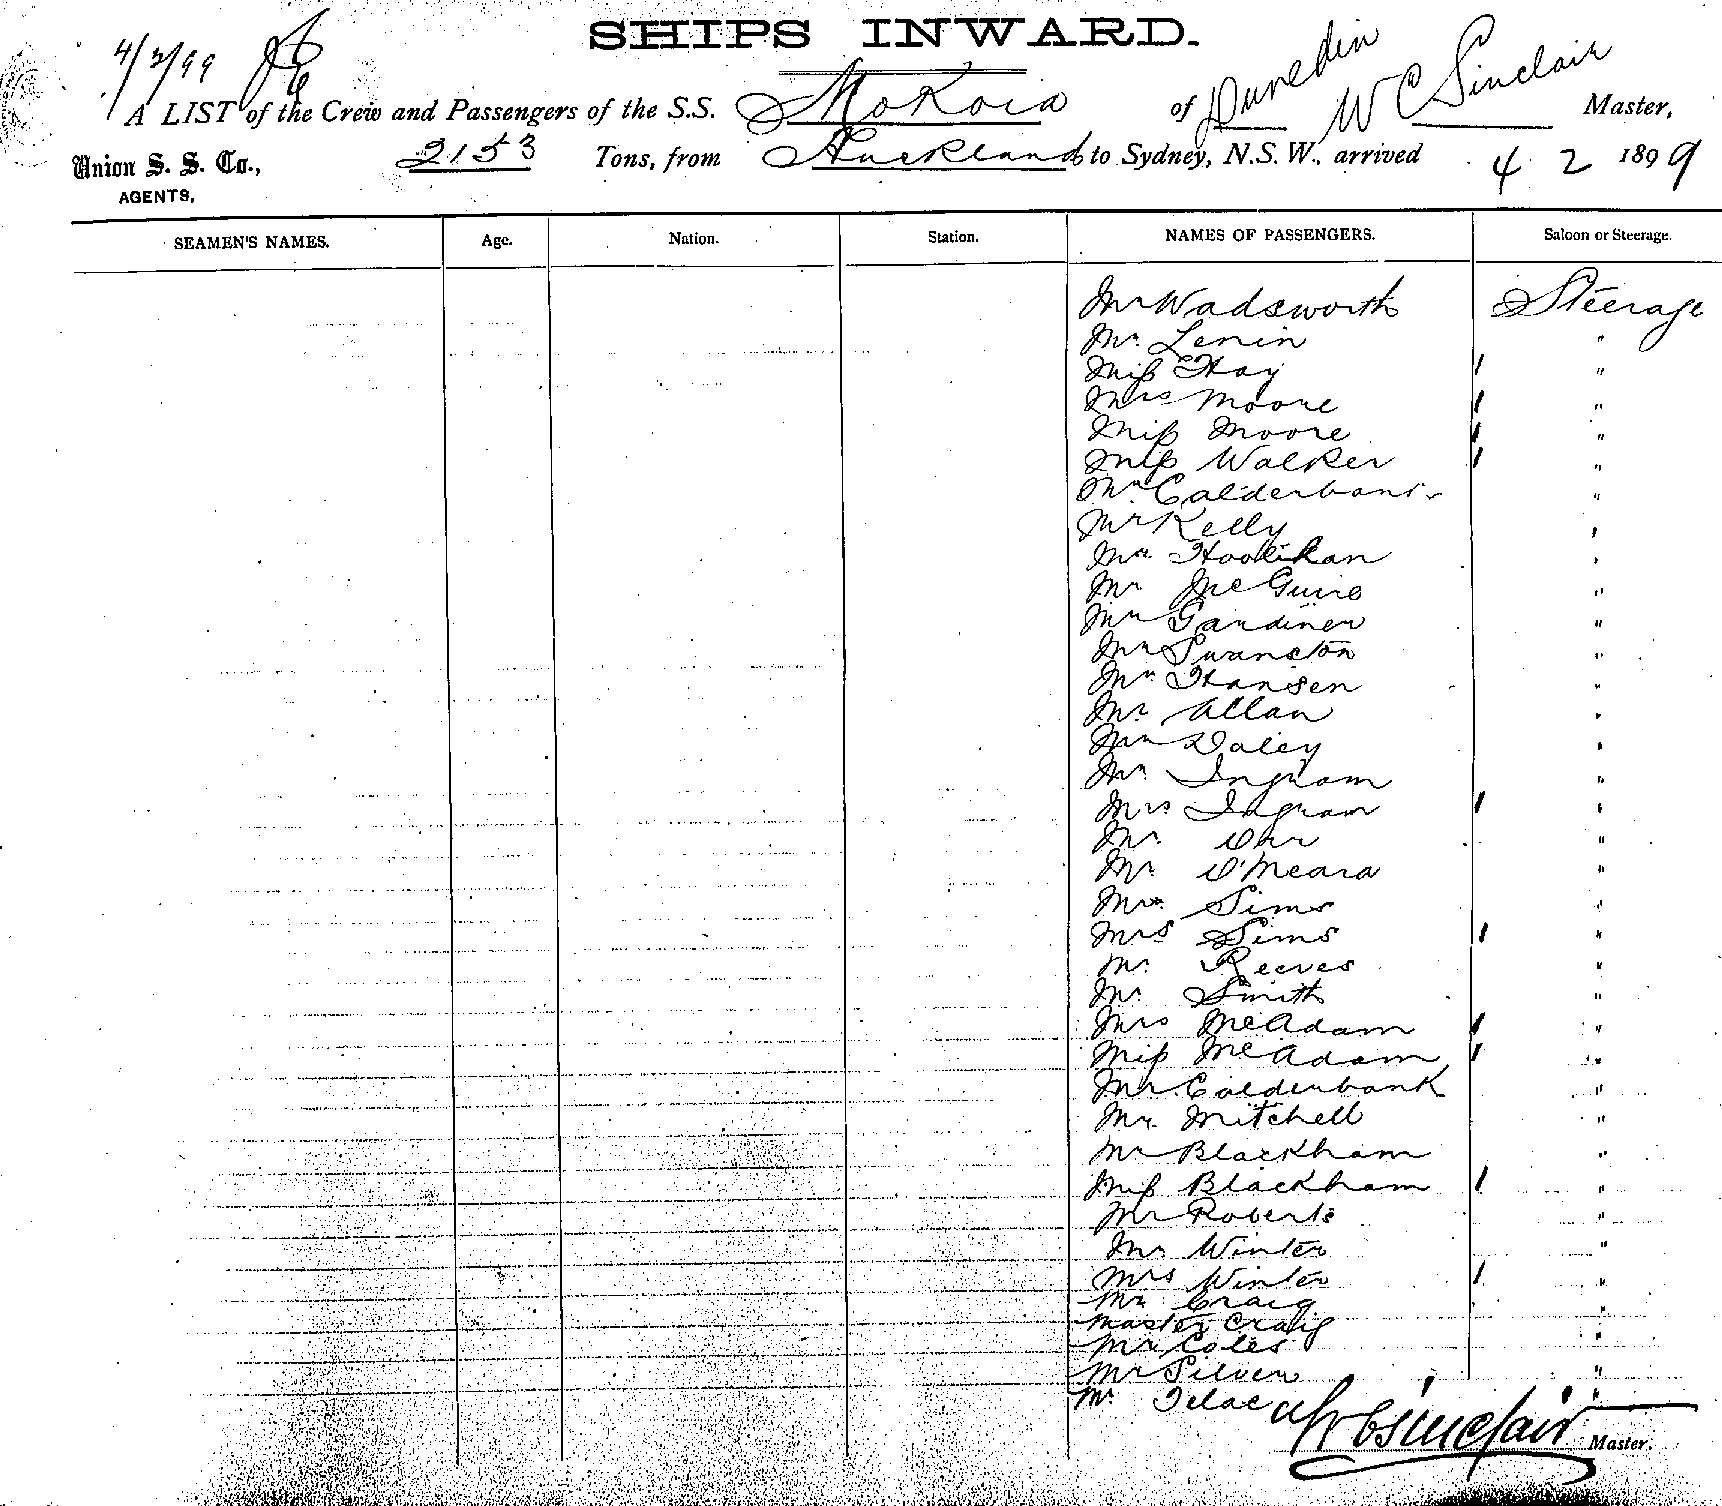 SHIPS INWARD.
4/2/99
A LIST of the Crew and Passengers of the S.S. Mokoia of Dunedin W C Sinclair Master,
Union S. S. Co., 2153 Tons, from Auckland to Sydney, N.S.W., arrived 4 2 1899
AGENTS,
SEAMEN'S NAMES. Age. Nation. Station. NAMES OF PASSENGERS. Saloon or Steerage.
Mr Wadsworth Steerage
Mr. Lenin "
Miss Hay "
Mrs Moore "
Miss Moore "
Miss Walker "
Mr Calderbank "
Mr Kelly "
Mr Hoolihan "
Mr McGuire "
Mr Gardiner "
Mr Swanston "
Mr Hansen "
Mr Allan "
Mr Daley "
Mr. Ingram "
Mrs Ingram "
Mr. Orr "
Mr O'Meara "
Mr Sims "
Mrs Sims "
Mr. Reeves "
Mr. Smith "
Mrs McAdam "
Miss McAdam "
Mr. Calderbank "
Mr. Mitchell "
Mr Blackham "
Miss Blackham "
Mr Roberts "
Mr Winter "
Mrs Winter "
Mr Craig "
Master Craig
Mr Coles "
Mr Silver "
Mr. "
W C Sinclair Master.